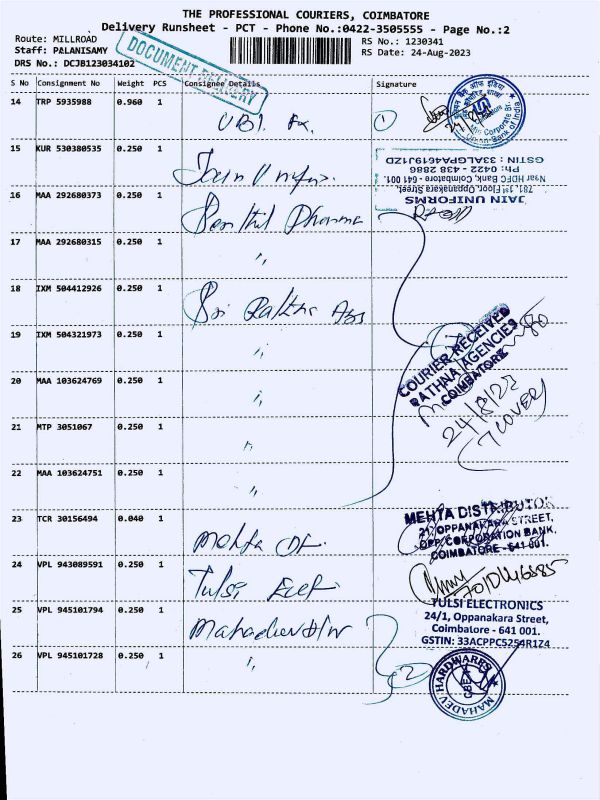 THE PROFESSIONAL COURIERS, COIMBATORE
Delivery Runsheet - PCT - Phone No.:0422-3505555 - Page No.:2
Route: MILLROAD
RS No.: 1230341
Staff: PALANISAMY
RS Date: 24-Aug-2023
DRS No.: DCJB123034102
DOCUMENT DELIVERY
S No Consignment No Weight PCS Consignee Details Signature
14 TRP 5935988 0.960 1 UBI
1
15 KUR 530380535 0.250 1 Jain
JAIN UNIFORMS
781, 1st Floor, Oppanakara Street,
Near HDFC Bank, Coimbatore - 641 001.
Ph: 0422 - 438 2886
GSTIN : 33ALCPA4619J1ZD
16 MAA 292680373 0.250 1 Senthil Pharma
17 MAA 292680315 0.250 1 "
18 IXM 504412926 0.250 1 Sri Rathna
19 IXM 504321973 0.250 1 "
COURIER RECEIVED
RATHNA AGENCIES
COIMBATORE
24/8/23
(7 COVER)
20 MAA 103624769 0.250 1 "
21 MTP 3051067 0.250 1 "
22 MAA 103624751 0.250 1 "
23 TCR 30156494 0.040 1 Mehta
MEHTA DISTRIBUTOR
OPPANAKARA STREET,
OPP. CORPORATION BANK,
COIMBATORE - 641 001.
24 VPL 943089591 0.250 1 Tulsi
TULSI ELECTRONICS
24/1, Oppanakara Street,
Coimbatore - 641 001.
GSTIN: 33ACPPC5254R1Z4
25 VPL 945101794 0.250 1 Mahadev H/W
26 VPL 945101728 0.250 1 "
2
MAHADEV HARDWARES
CBE-1